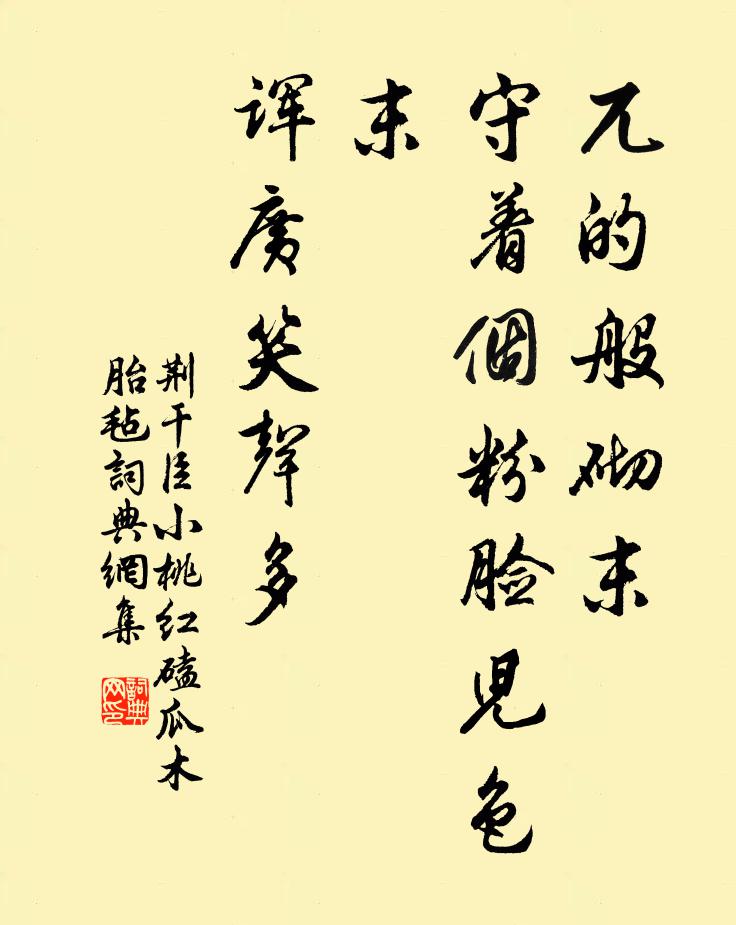 兀的般砌末
守着個粉脸兒色
末
诨廣笑聲多
荆干臣小桃红磕瓜木
胎毡詞典網集
詞典网印